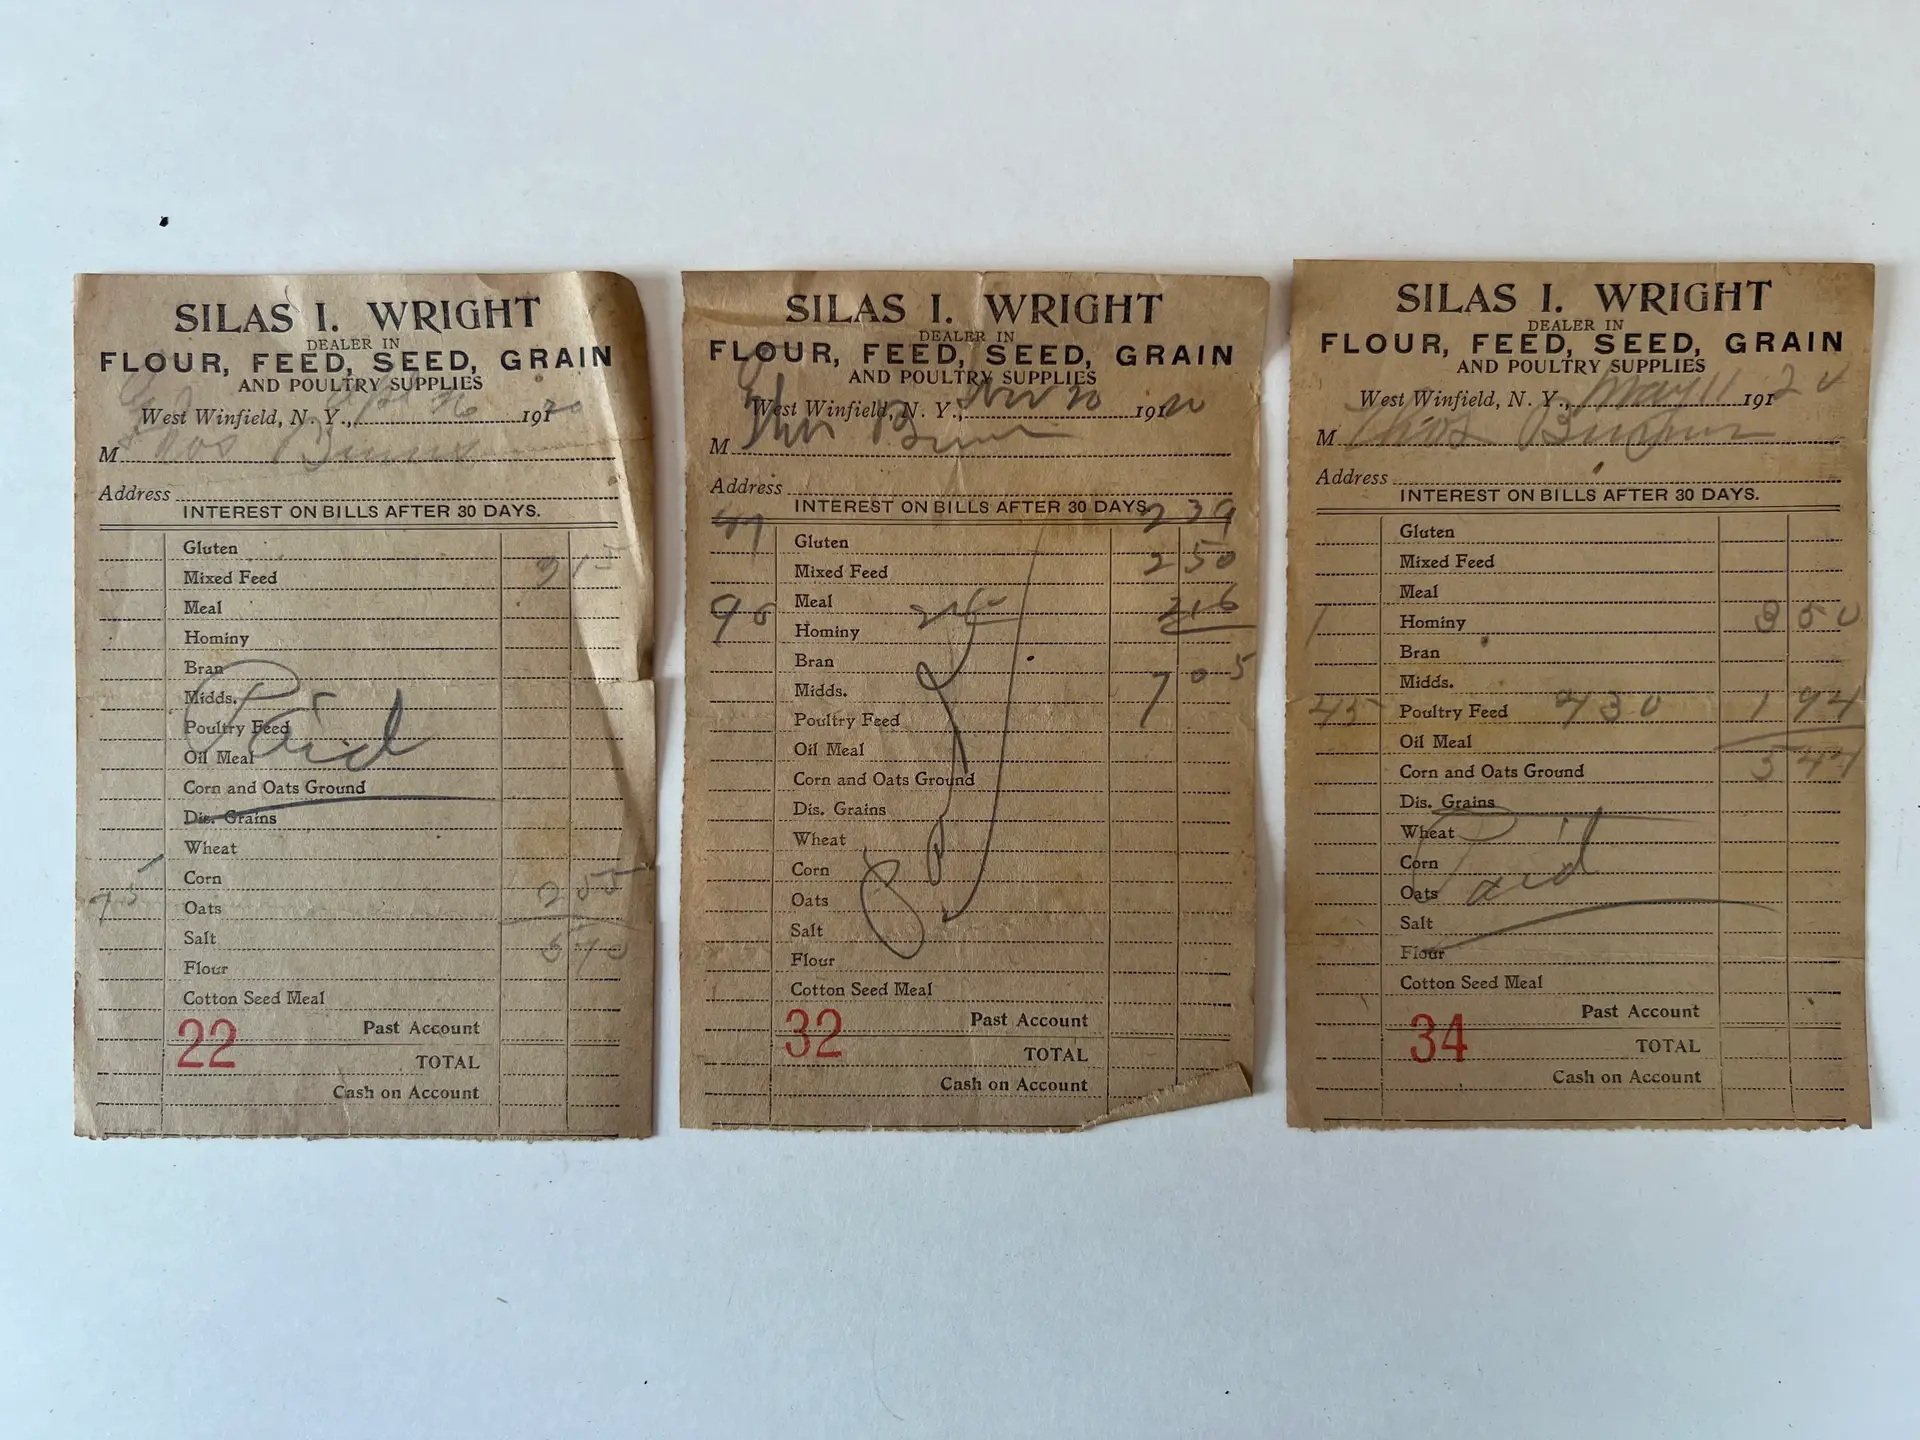 SILAS I. WRIGHT
DEALER IN
FLOUR, FEED, SEED, GRAIN
AND POULTRY SUPPLIES
West Winfield, N. Y., 26 191 20
M
Address
INTEREST ON BILLS AFTER 30 DAYS.
Gluten
Mixed Feed 3 15
Meal
Hominy
Bran
Midds.
Poultry Feed
Paid
Oil Meal
Corn and Oats Ground
Dis. Grains
Wheat
Corn
75 Oats 2 55
Salt 5 70
Flour
Cotton Seed Meal
22 Past Account
TOTAL
Cash on Account
SILAS I. WRIGHT
DEALER IN
FLOUR, FEED, SEED, GRAIN
AND POULTRY SUPPLIES
West Winfield, N. Y., Nov 20 191
M
Address
INTEREST ON BILLS AFTER 30 DAYS. 2 39
Gluten
Mixed Feed 2 50
Meal 2 16
Hominy
Bran
Midds. 7 05
Poultry Feed
Oil Meal
Corn and Oats Ground
Dis. Grains
Wheat
Corn
Oats
Salt
Flour
Cotton Seed Meal
32 Past Account
TOTAL
Cash on Account
SILAS I. WRIGHT
DEALER IN
FLOUR, FEED, SEED, GRAIN
AND POULTRY SUPPLIES
West Winfield, N. Y., May 11 191 20
M Thos
Address
INTEREST ON BILLS AFTER 30 DAYS.
Gluten
Mixed Feed
Meal
1 Hominy 3 50
Bran
Midds.
45 Poultry Feed 430 1 94
Oil Meal
Corn and Oats Ground 5 44
Dis. Grains
Wheat
Corn
Paid
Oats
Salt
Flour
Cotton Seed Meal
34 Past Account
TOTAL
Cash on Account